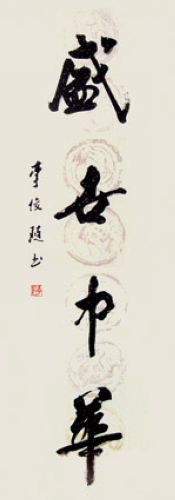 盛世中華
李俊題书